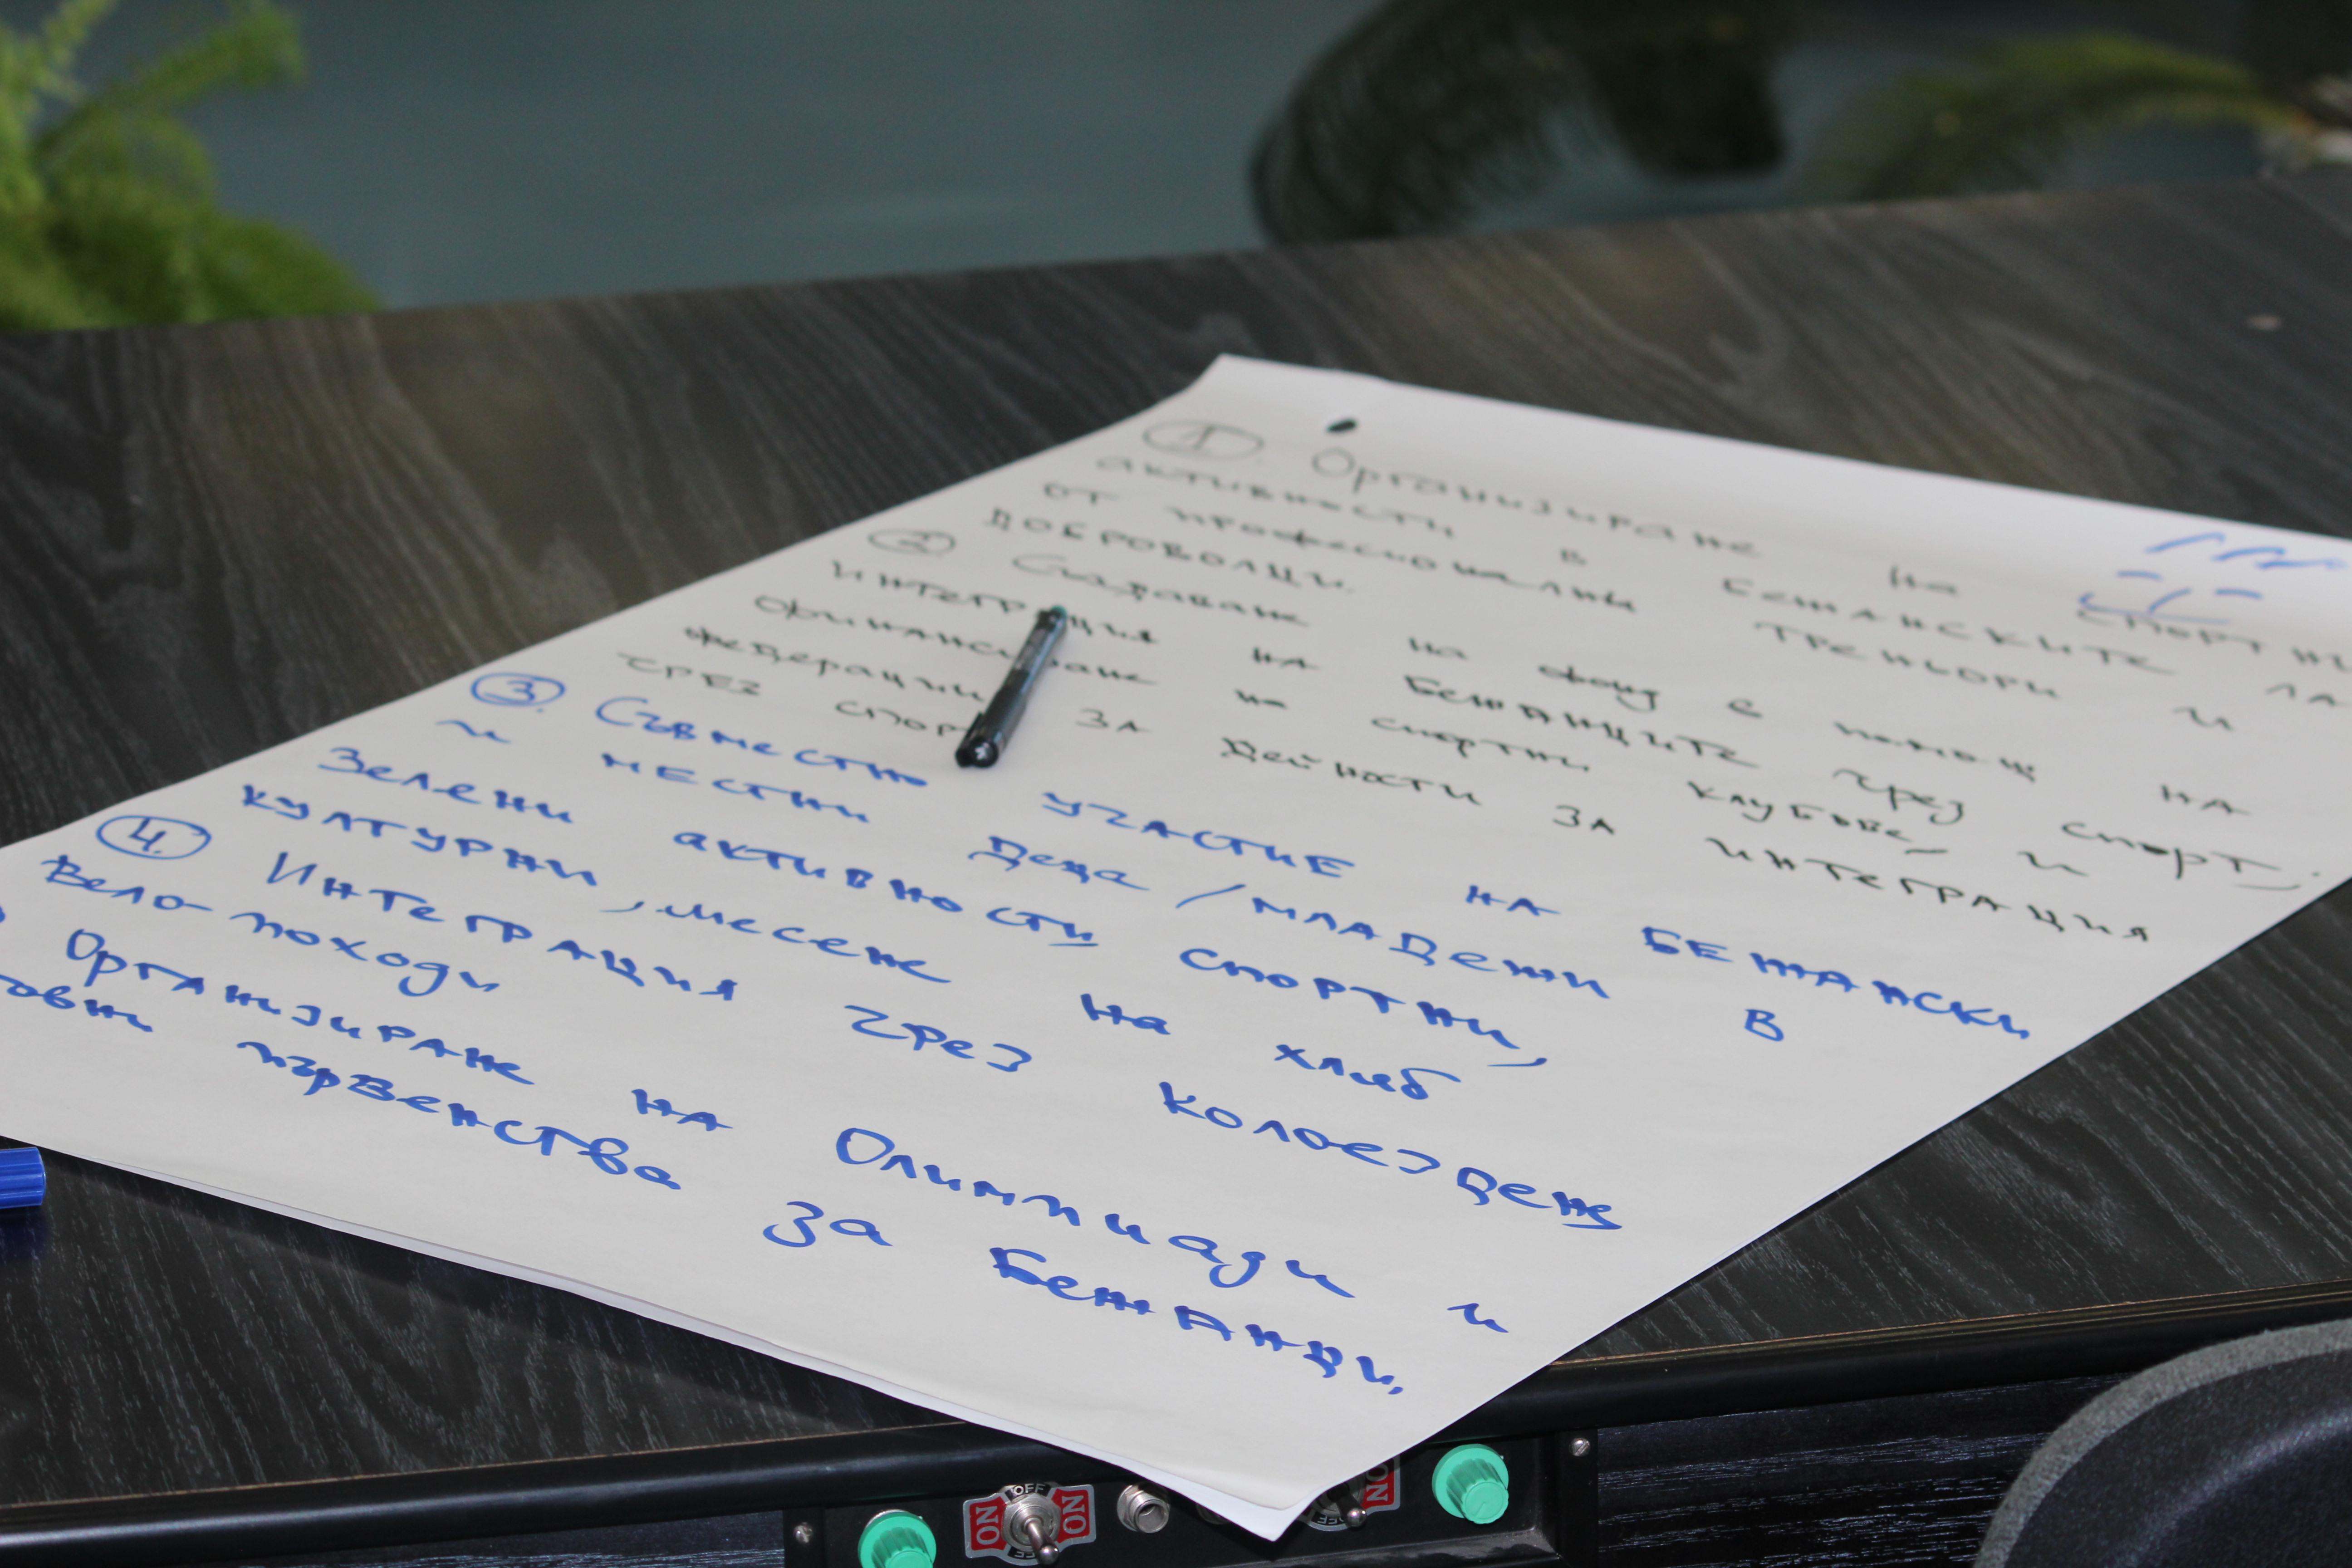 1. Организиране на спортни
активности в бежанските ла
от професионални треньори и
доброволци.
2. Създаване на фонд в помощ на
интеграция на бежанците чрез спорт.
финансиране на спортни клубове и
федерации за дейности за интеграция
чрез спорт
3. Съвместно участие на бежански
и местни деца / младежи в
Зелени активности спортни,
културни, месене на хляб
4. Интеграция чрез колоездене
Вело-походи
Организиране на Олимпиади и
първенства за бежанци.
ON OFF ON
ON